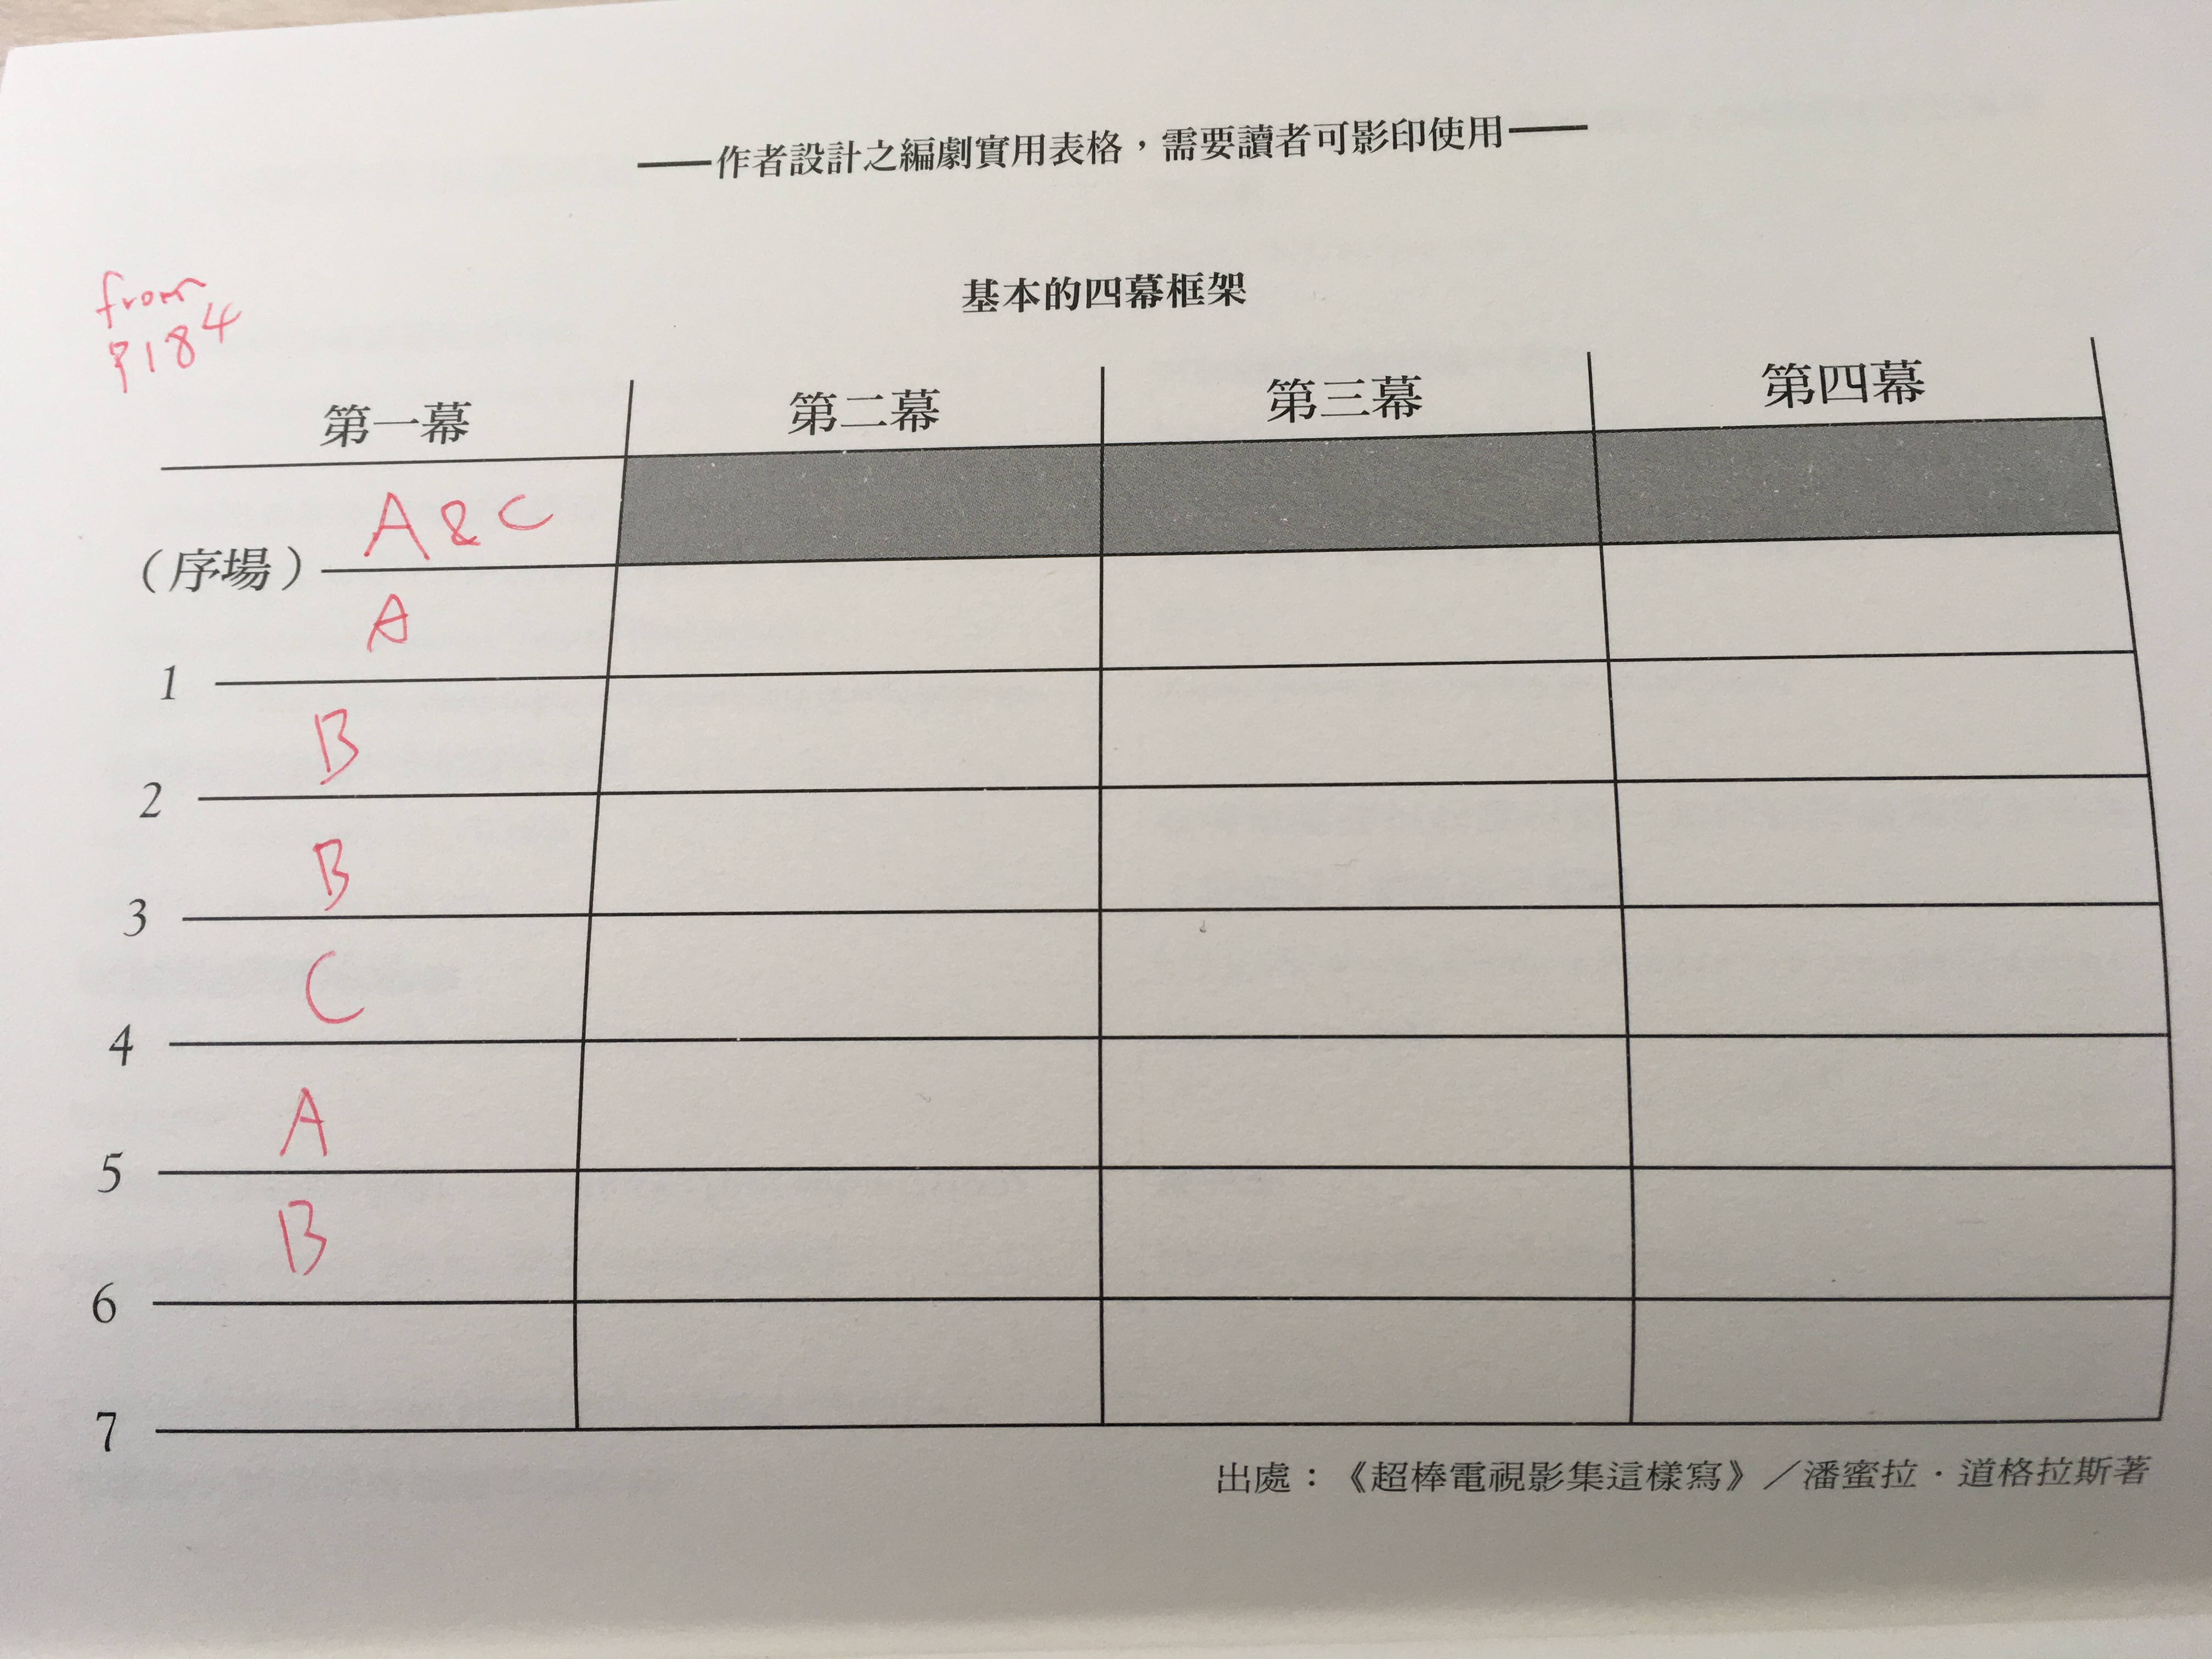 ——作者設計之編劇實用表格，需要讀者可影印使用——
基本的四幕框架
from
P184
第一幕 第二幕 第三幕 第四幕
（序場） A & C
1 A
2 B
3 B
4 C
5 A
6 B
7
出處：《超棒電視影集這樣寫》／潘蜜拉・道格拉斯著